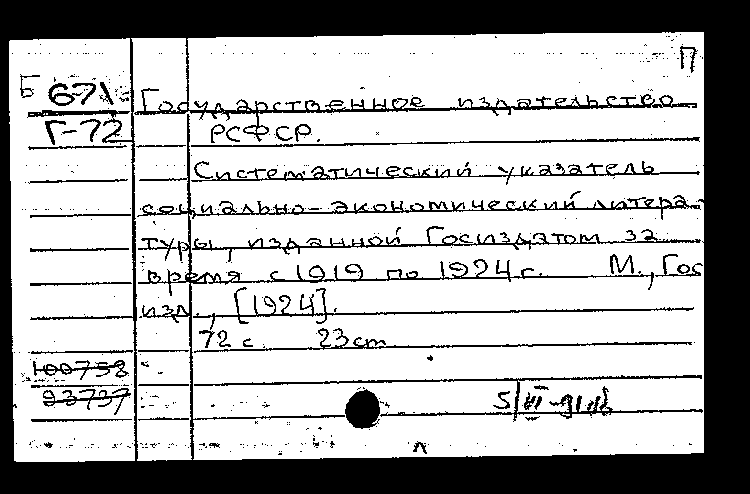 П
Б 671
Г-72
Государственное издательство
РСФСР.
Систематический указатель
социально-экономический литера-
туры, изданной Госиздатом за
время с 1919 по 1924 г. М., Гос
изд., [1924].
72 с 23 cm
100758
93737